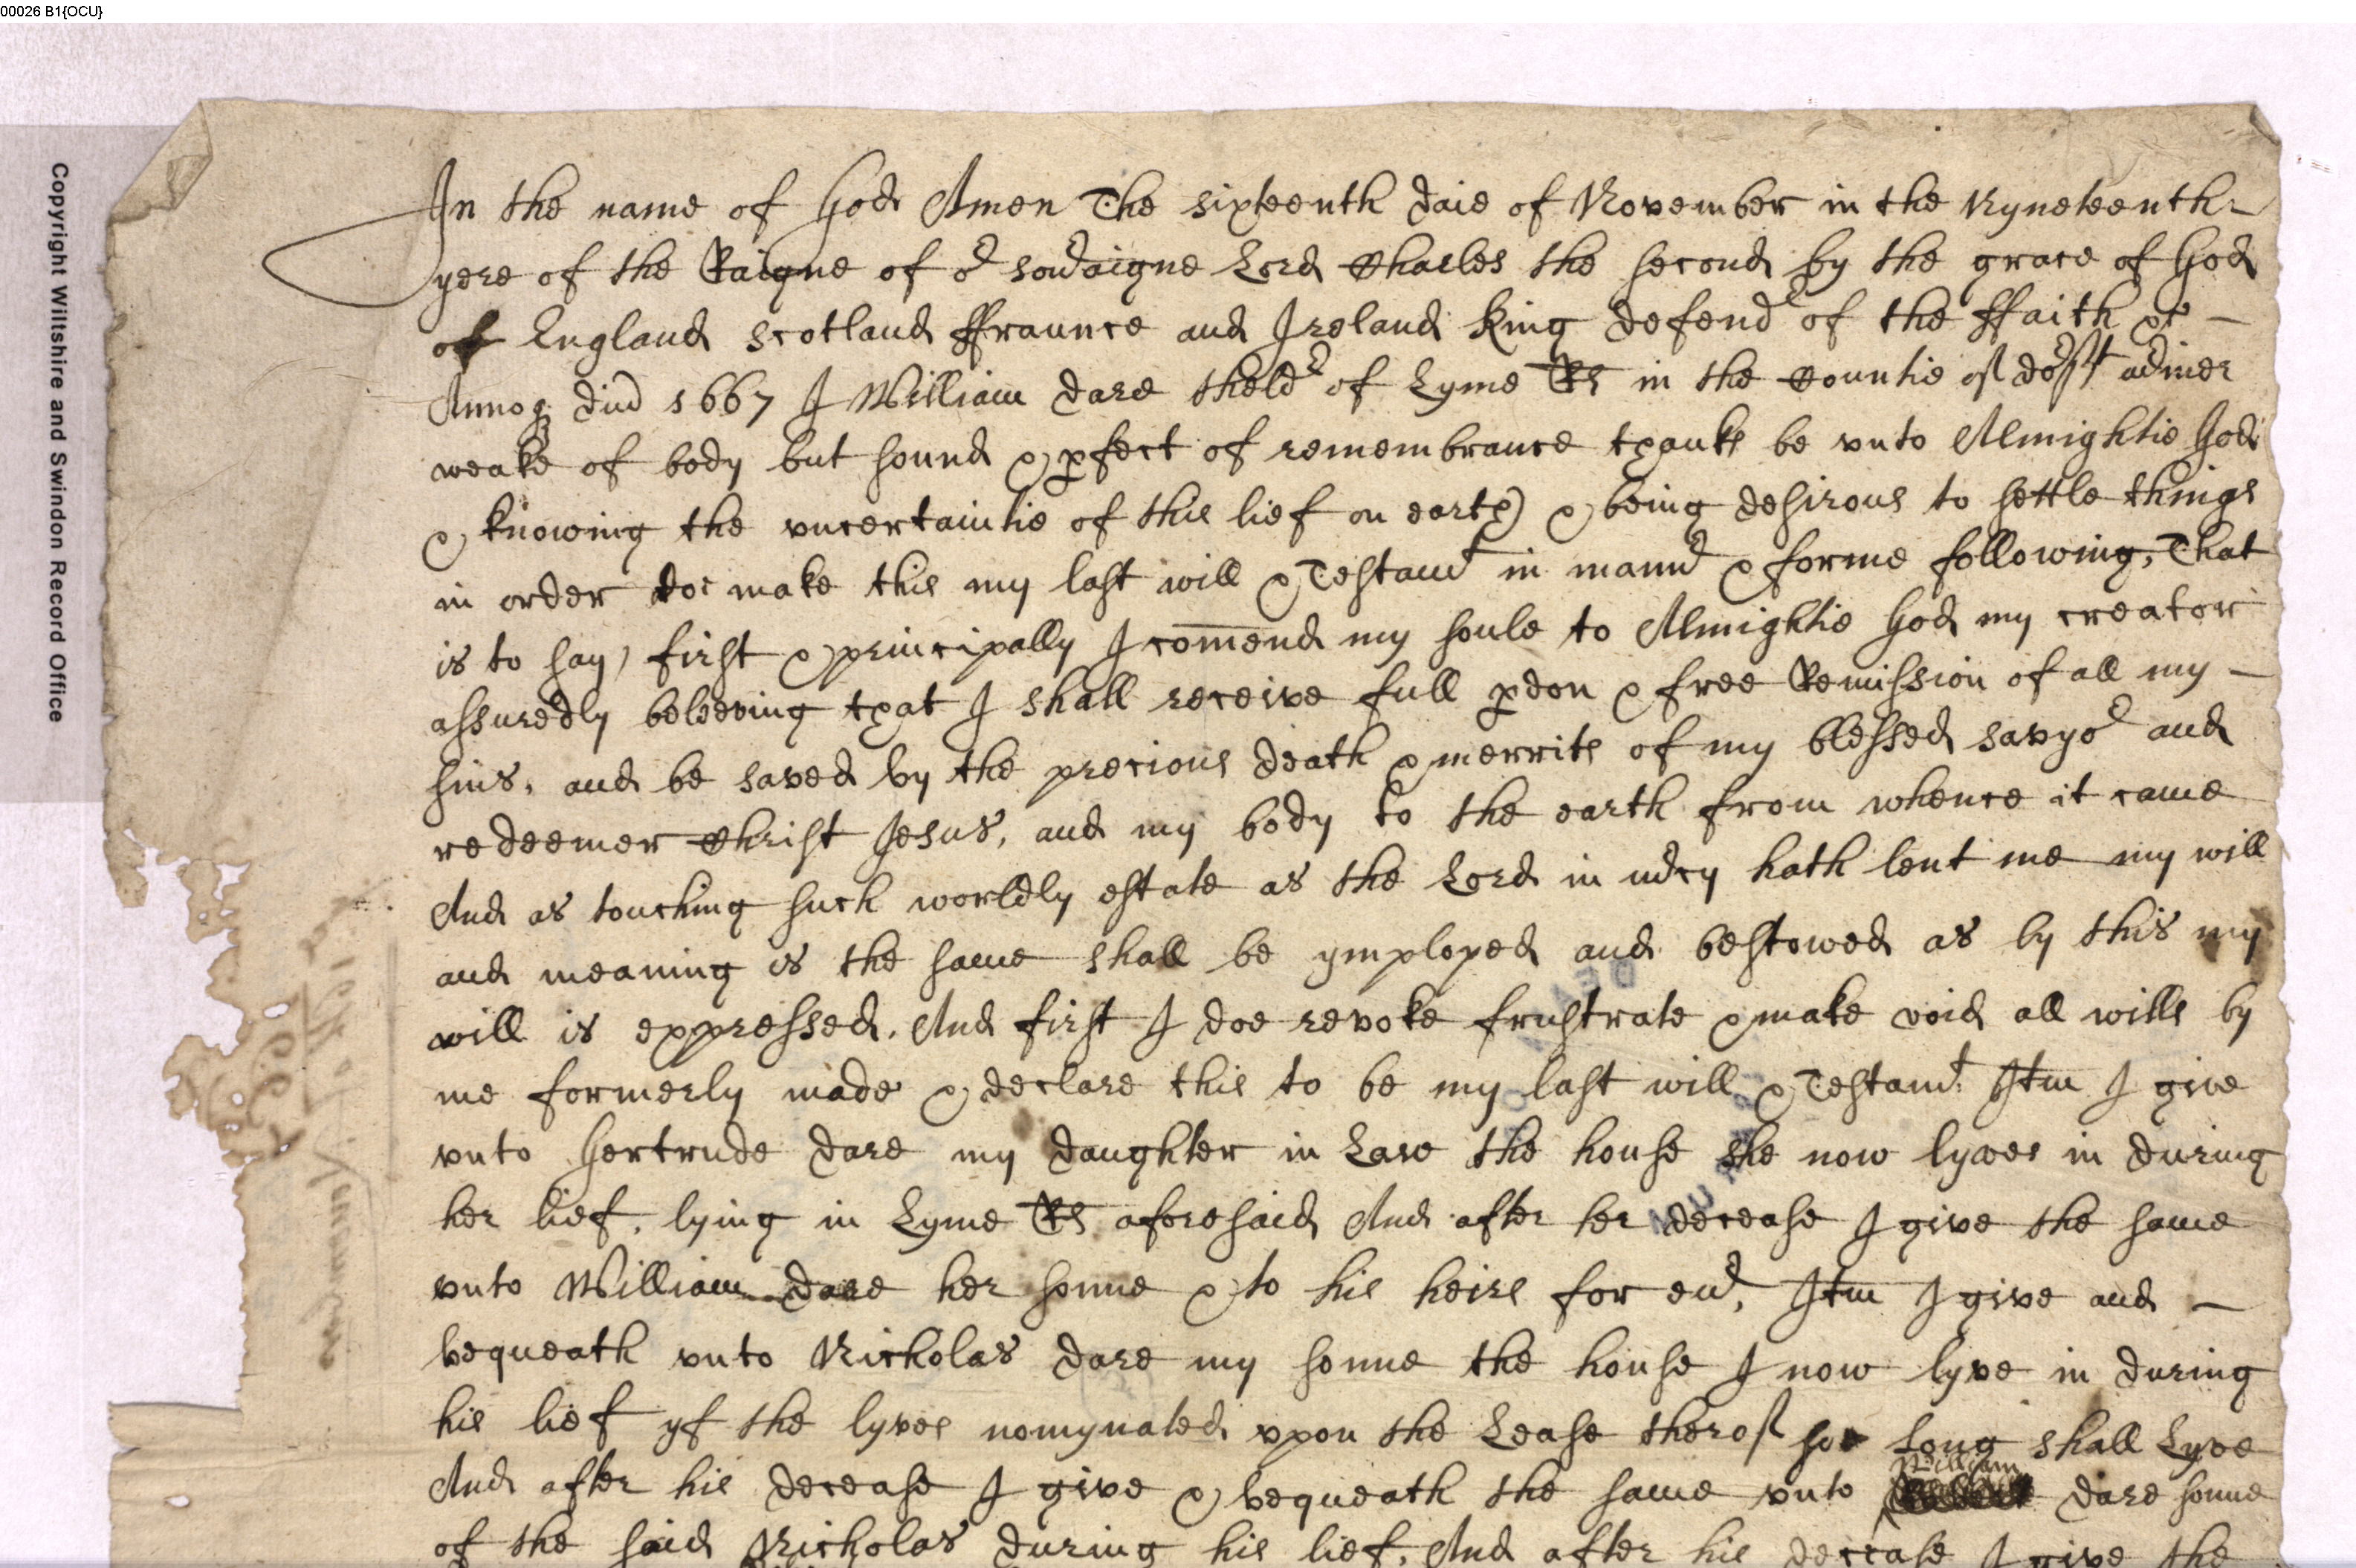 00026 B1{OCU}
Copyright Wiltshire and Swindon Record Office
In the name of God Amen The sixteenth daie of November in the Nyneteenth
yere of the Raigne of or sovaigne Lord Charles the second by the grace of God
of England Scotland ffraunce and Ireland King defendr of the ffaith &c
Annoq dni 1667 I William Dare theldr of Lyme Rs in the Countie of dorst
weake of body but sound & pfect of remembrance thanks be vnto Almightie God
& knowing the vncertaintie of this lief on earth & being desirous to settle things
in order doe make this my last will & Testamt in mannr & forme following, That
is to say, first & principally I comend my soule to Almightie God my creator
assuredly beleeving that I shall receive full pdon & free Remission of all my
sins, and be saved by the precious death & merrits of my blessed savyor and
redeemer Christ Jesus, and my body to the earth from whence it came
And as touching such worldly estate as the Lord in mercy hath lent me my will
and meaning is the same shall be ymployed and bestowed as by this my
will is expressed. And first I doe revoke frustrate & make void all wills by
me formerly made & declare this to be my last will & Testamt. Itm I give
vnto Gertrude Dare my daughter in Law the house she now lyves in during
her lief, lying in Lyme Rs aforesaid And after her decease I give the same
vnto William Dare her sonne & to his heirs for evr, Itm I give and
bequeath vnto Nicholas Dare my sonne the house I now lyve in during
his lief yf the lyves nomynated vpon the Lease therof so long shall Lyve
And after his decease I give & bequeath the same vnto William Dare sonne
of the said Nicholas during his lief. And after his decease I give the